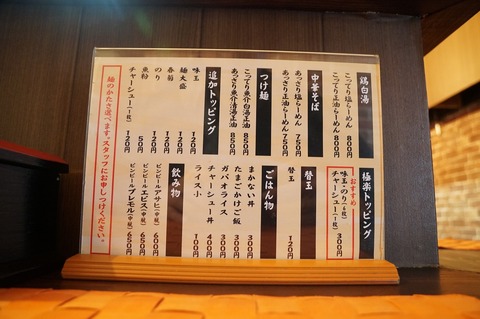 鶏白湯
こってり塩らーめん 800円
こってり正油らーめん 800円
中華そば
あっさり塩らーめん 750円
あっさり正油らーめん 750円
つけ麺
こってり魚介正油 850円
あっさり魚介清湯正油 850円
追加トッピング
味玉 120円
麺大盛 120円
春菊 120円
のり 120円
魚粉 50円
チャーシュー(1枚) 120円
極楽トッピング
おすすめ
味玉・のり(6枚)
チャーシュー(1枚) 300円
替玉
替玉 120円
ごはん物
まかない丼 300円
たまごかけご飯 300円
ガパオライス 300円
チャーシュー丼 400円
ライス小 100円
飲み物
ビンビールアサヒ(中瓶) 600円
ビンビールエビス(中瓶) 650円
ビンビールプレモル(中瓶) 650円
麺のかたさ選べます。スタッフにお申しつけください。